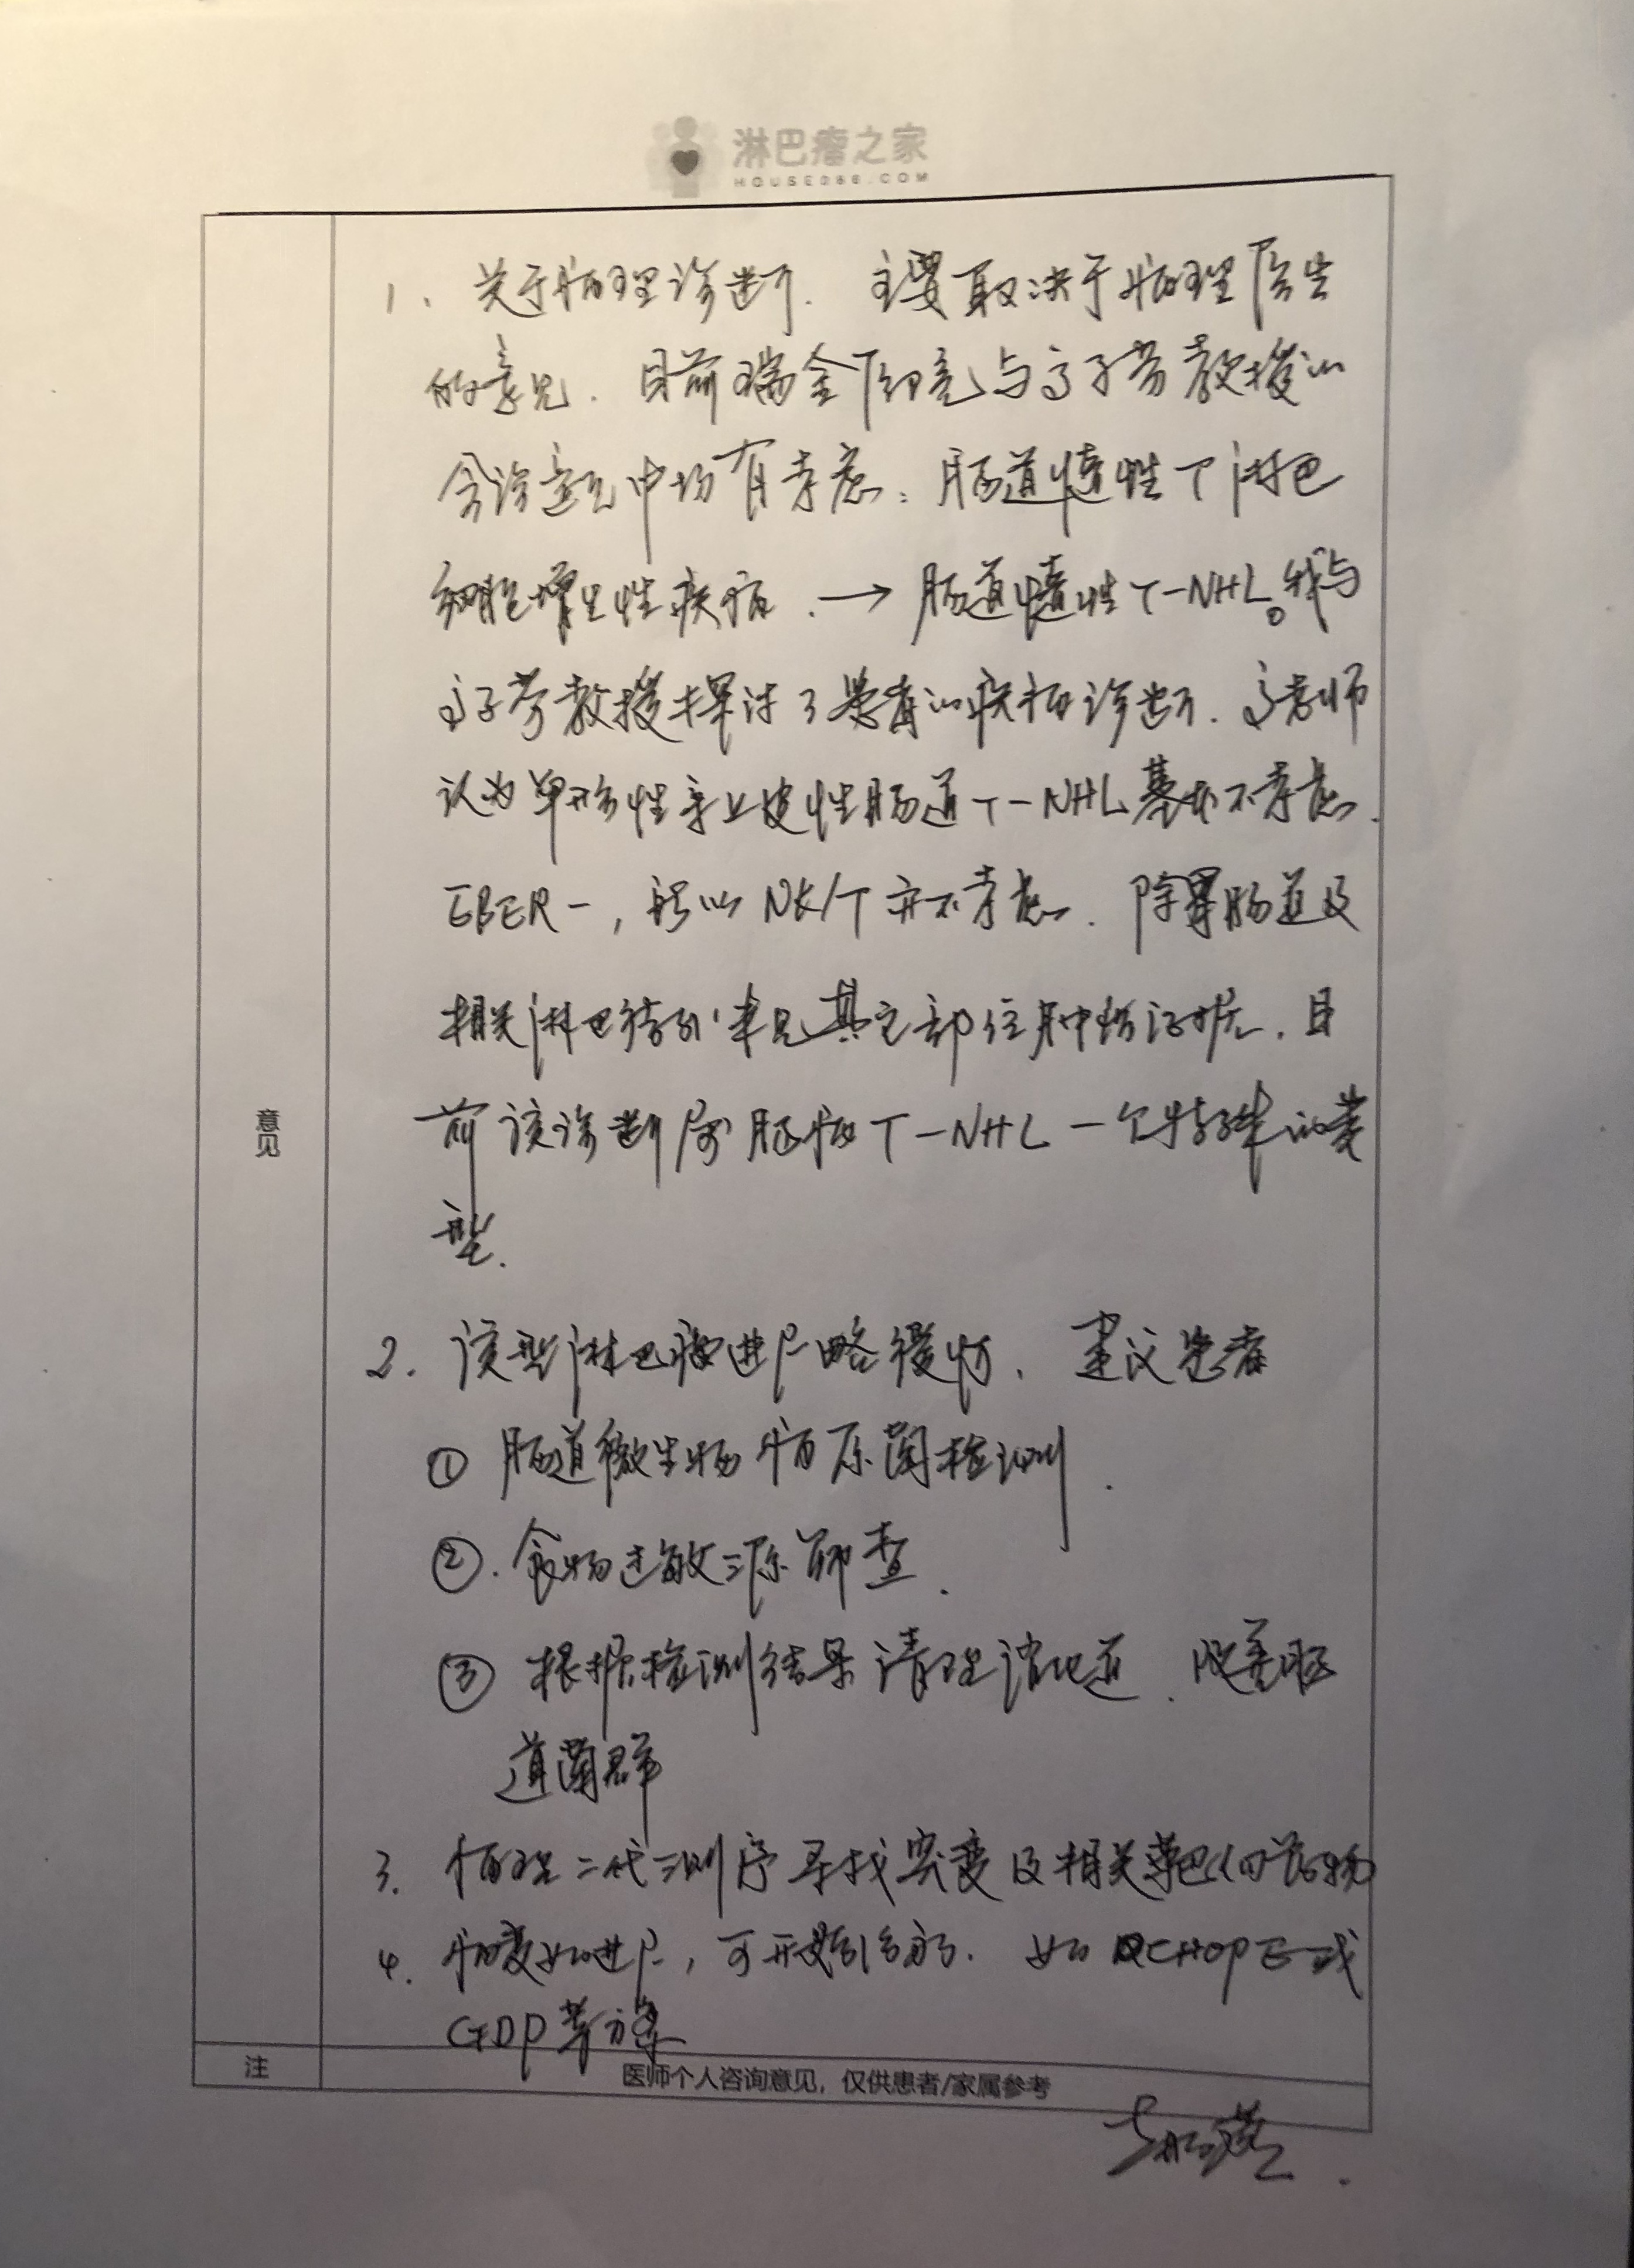 淋巴瘤之家
HOUSE086.COM
1、关于病理诊断. 主要取决于病理医生
的意见. 目前瑞金 与高子芬教授的
会诊意见中均有考虑: 肠道惰性T淋巴
细胞增生性疾病. → 肠道惰性T-NHL。我与
高子芬教授探讨了患者的疾病诊断. 高老师
认为单形性亲上皮性肠道T-NHL基本不考虑.
EBER-, 所以NK/T亦不考虑. 除胃肠道及
相关淋巴结外未见其它部位肿瘤证据. 目
前该诊断属肠病T-NHL一个特殊的类
型.
2. 该型淋巴瘤进展略缓慢. 建议患者
① 肠道微生物病原菌检测.
②. 食物过敏源筛查.
③ 根据检测结果清理消化道. 改善肠
道菌群
3. 病理二代测序寻找突变及相关靶向药物
4. 病变如进展, 可开始治疗. 如 CHOPE或
GDP等方案
意见
注
医师个人咨询意见，仅供患者/家属参考